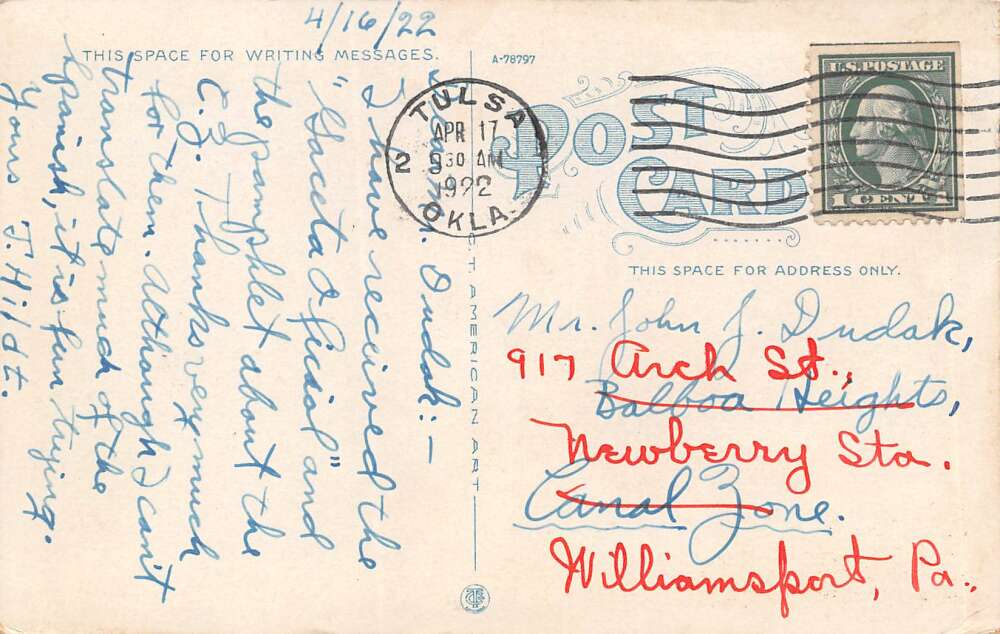 4/16/22
THIS SPACE FOR WRITING MESSAGES.
Dear Mr. Dudak:—
I have received the
"Gaceta Oficial" and
the pamphlet about the
C.Z. Thanks very much
for them. Although I can't
translate much of the
Spanish, it is fun trying.
Yours J. Hildt.
A-78797
C.T. AMERICAN ART
POST CARD
TULSA
APR 17
9 30 AM
1922
OKLA.
2
U.S. POSTAGE
1 CENT 1
THIS SPACE FOR ADDRESS ONLY.
Mr. John J. Dudak,
917 Arch St.,
Balboa Heights,
Newberry Sta.
Canal Zone.
Williamsport, Pa.,